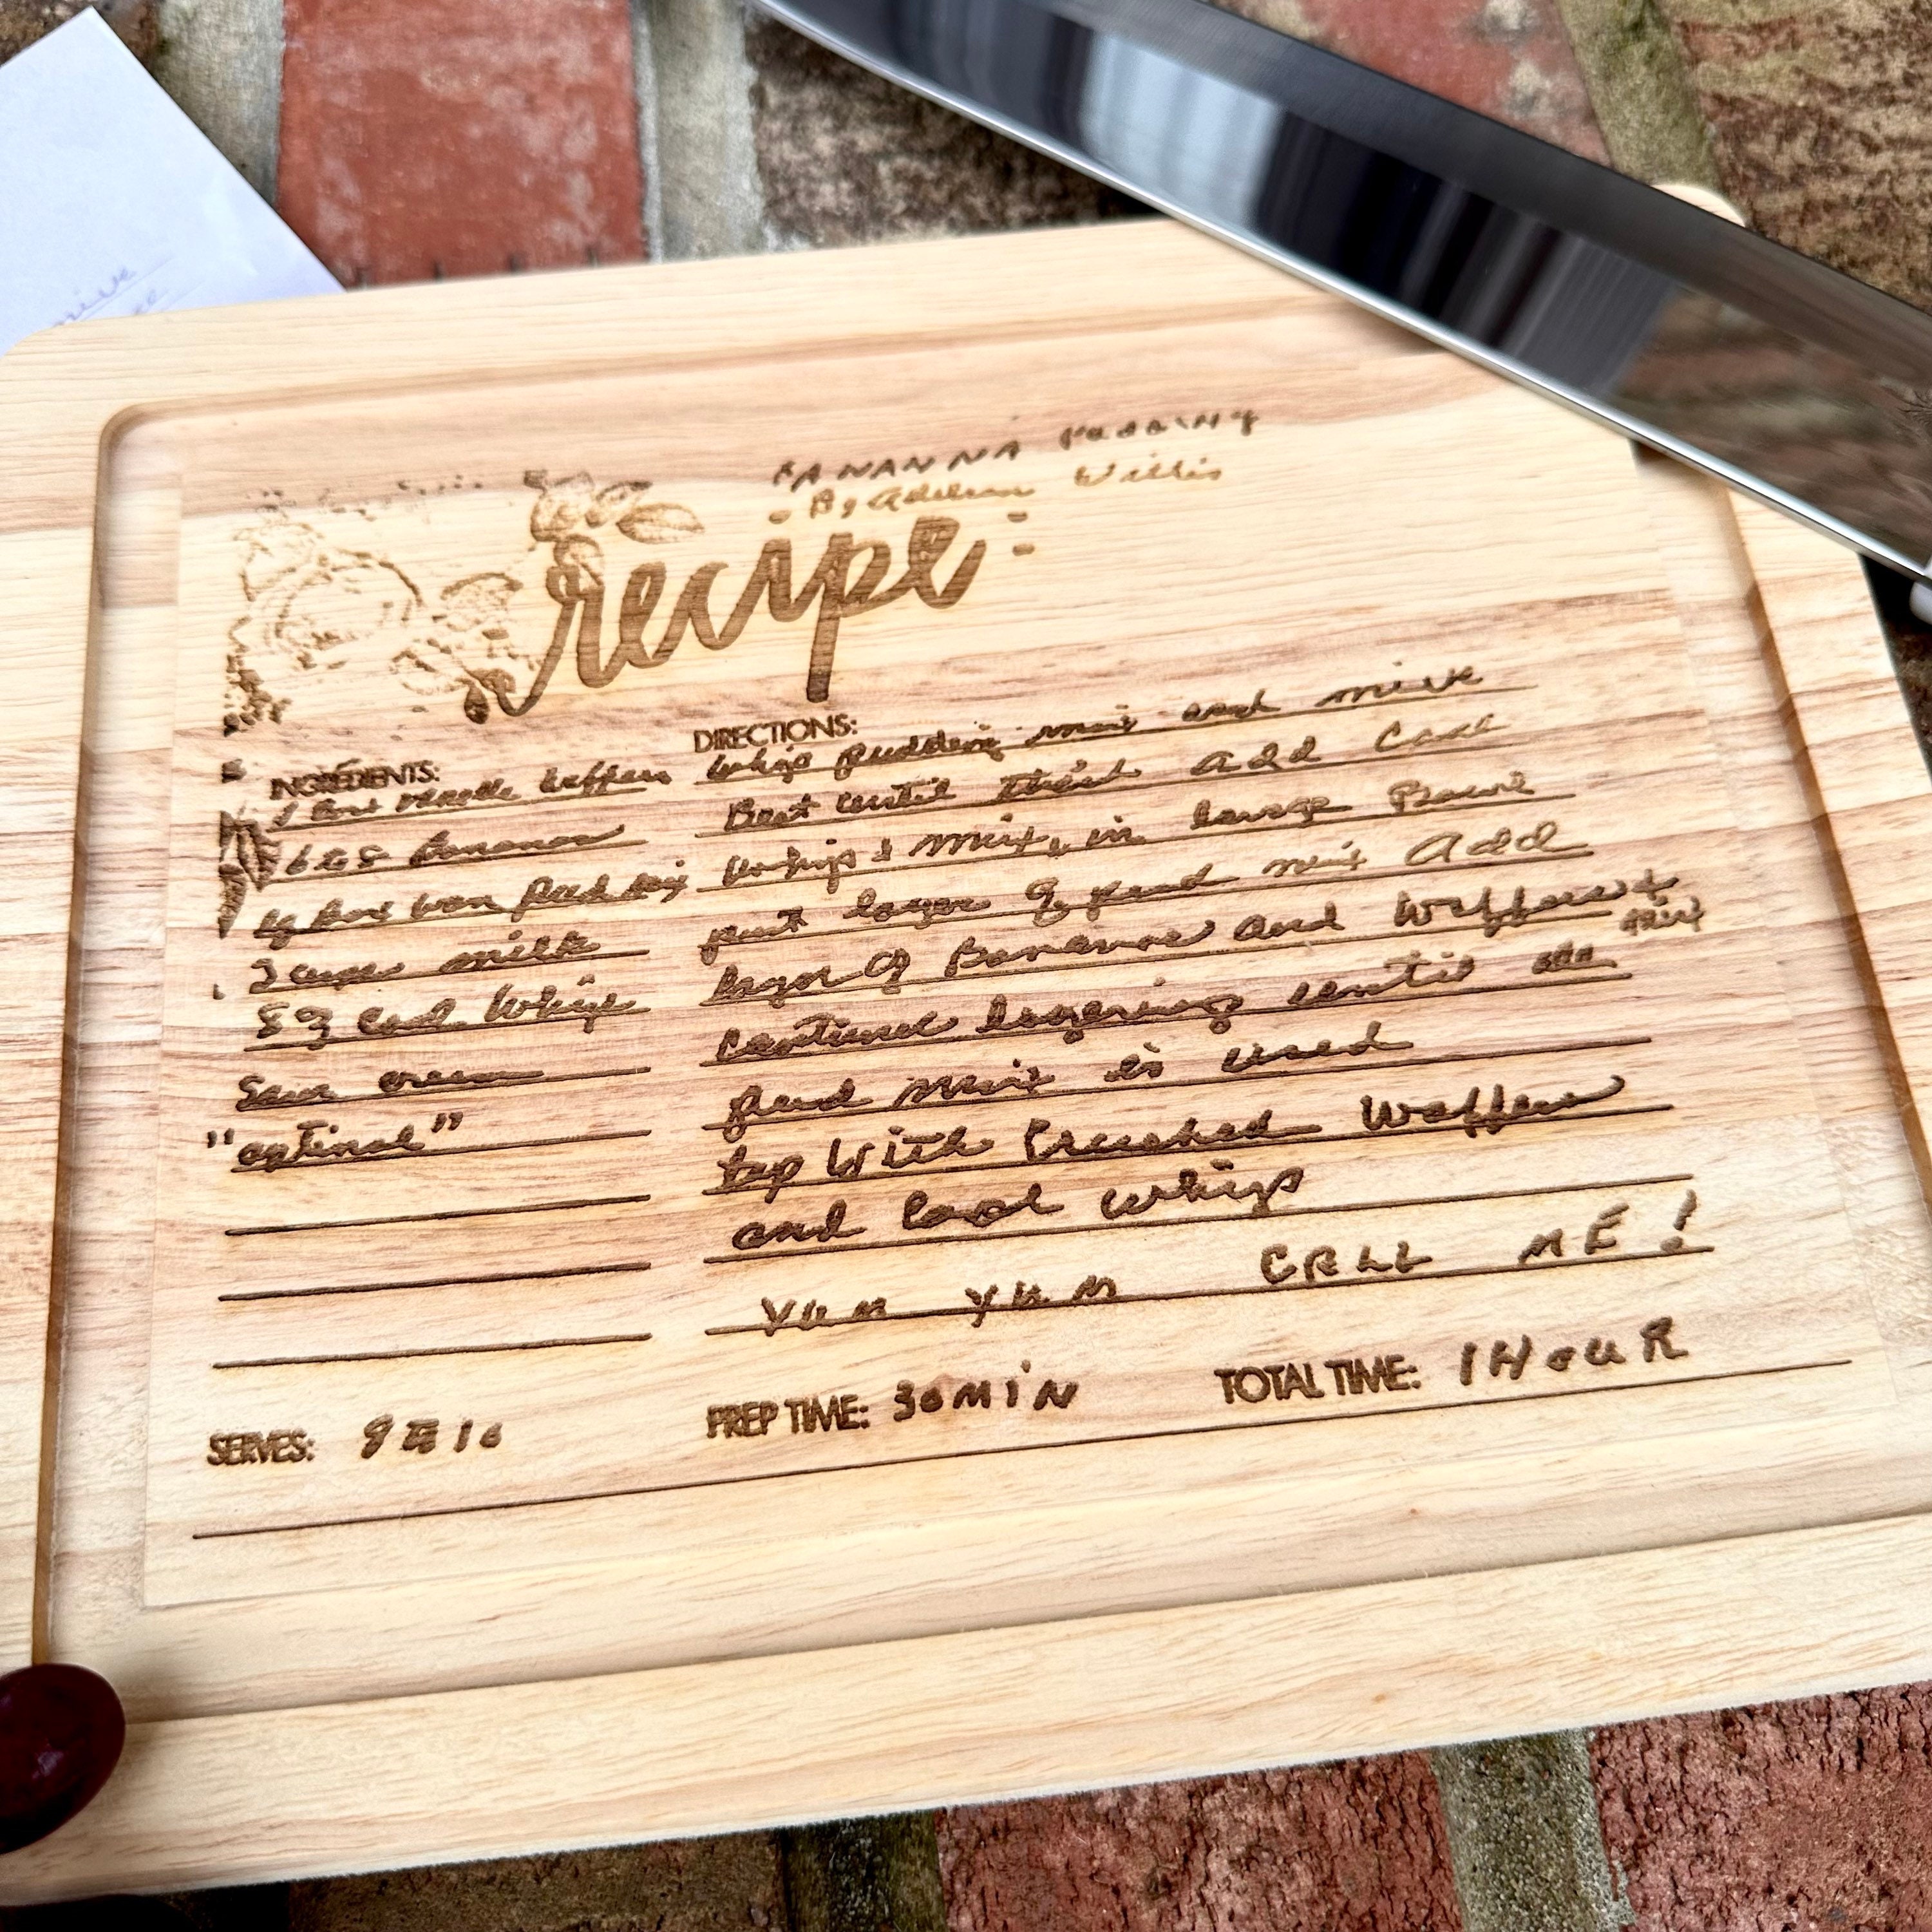 BANANNA PUDDING
By Adeline Willis
recipe:
INGREDIENTS:
1 Box vanilla waffers
6 to 8 Bananas
lg Box van pud mix
3 cups milk
8 oz cool whip
Sour cream
"optinal"
DIRECTIONS:
Whip pudding mix and milk
Beat until thick add cool
whip & mix, in large Bowl
put layer of pud mix add
layer of Bananas and waffers &
continue layering until all
mix
pud mix is used
top with crushed waffers
and cool whip
YUM YUM CALL ME!
SERVES: 8 to 10
PREP TIME: 30 MIN
TOTAL TIME: 1 HOUR